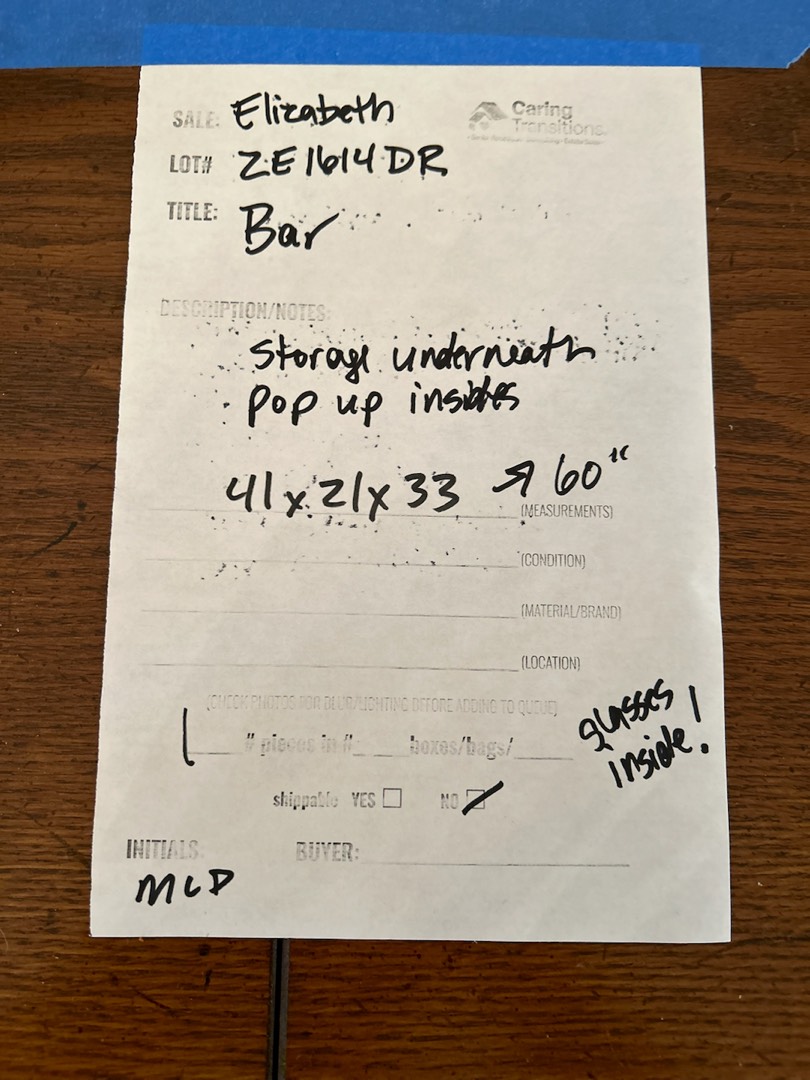 SALE: Elizabeth
Caring Transitions
LOT# ZE1614DR
TITLE: Bar
DESCRIPTION/NOTES:
Storage underneath
pop up insides
41 x 21 x 33 ↗ 60"
(MEASUREMENTS)
(CONDITION)
(MATERIAL/BRAND)
(LOCATION)
(CHECK PHOTOS FOR BLUR/LIGHTING BEFORE ADDING TO QUEUE)
glasses
inside!
1 # pieces in # boxes/bags/
shippable YES NO
INITIALS: BUYER:
MCD